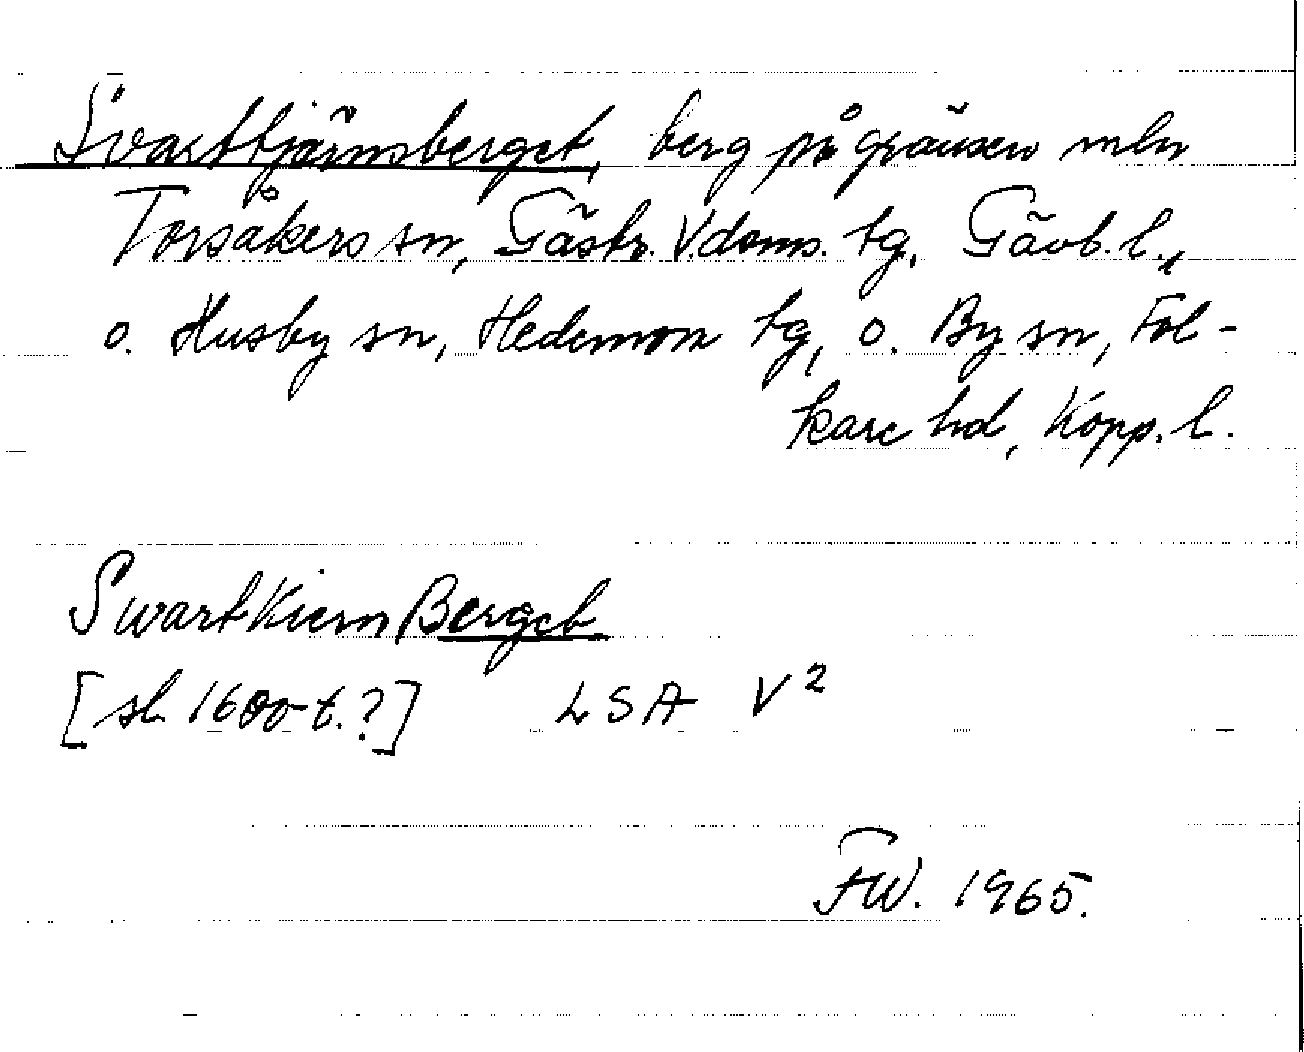 Svarttjärnsberget, berg på gränsen mln
Torsåkers sn, Gästr. V. doms. tg, Gävb. l.,
o. Husby sn, Hedemora tg, o. By sn, Fol-
kare hd, Kopp. l.
SwartKiern Berget
[sl. 1600-t.?] LSA V²
FW. 1965.